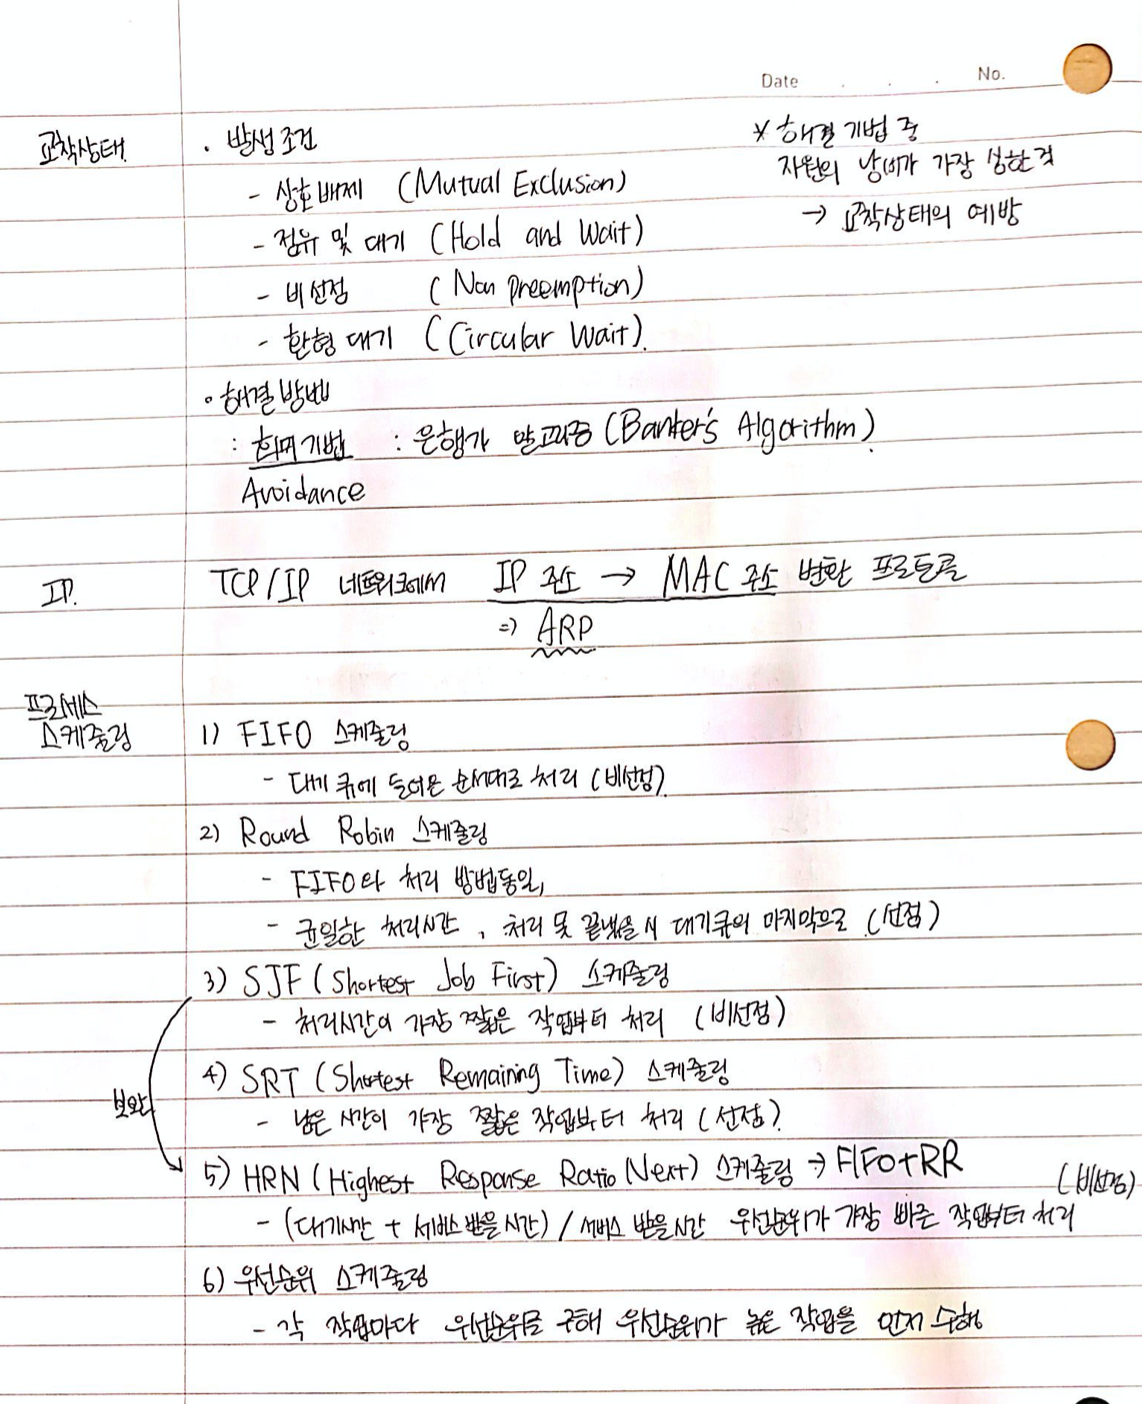 Date . . . No.
교착상태
· 발생조건
- 상호배제 (Mutual Exclusion)
- 점유 및 대기 (Hold and Wait)
- 비선점 (Non preemption)
- 환형대기 (Circular Wait).
* 해결 기법 중
자원의 낭비가 가장 심한 것
→ 교착상태의 예방
· 해결방법
: 회피기법 : 은행가 알고리즘 (Banker's Algorithm).
Avoidance
IP.
TCP/IP 네트워크에서 IP 주소 → MAC 주소 변환 프로토콜
⇒ ARP
프로세스
스케줄링
1) FIFO 스케줄링
- 대기 큐에 들어온 순서대로 처리 (비선점)
2) Round Robin 스케줄링
- FIFO와 처리 방법동일,
- 균일한 처리시간, 처리 못 끝냈을 시 대기큐의 마지막으로 (선점)
3) SJF (Shortest Job First) 스케줄링
- 처리시간이 가장 짧은 작업부터 처리 (비선점)
4) SRT (Shortest Remaining Time) 스케줄링
- 남은 시간이 가장 짧은 작업부터 처리 (선점)
보완
5) HRN (Highest Response Ratio Next) 스케줄링 → FIFO+RR (비선점)
- (대기시간 + 서비스 받을 시간) / 서비스 받을 시간 우선순위가 가장 빠른 작업부터 처리
6) 우선순위 스케줄링
- 각 작업마다 우선순위를 구해 우선순위가 높은 작업을 먼저 수행